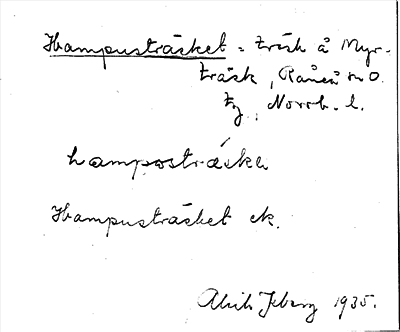 Hampusträsket = träsk å Myr-
träsk, Råneå sn O.
tg, Norrb. l.
hampostráska
Hampusträsket ek.
1935.